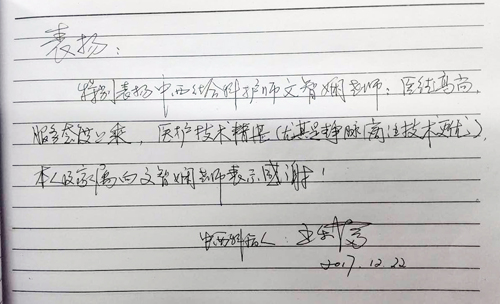 表扬：
特别表扬中西结合科护师文智娴老师：医德高尚，
服务态度上乘，医护技术精湛（尤其是静脉滴注技术更优），
本人及家属向文智娴老师表示感谢！
中西科病人：王
2017.12.22